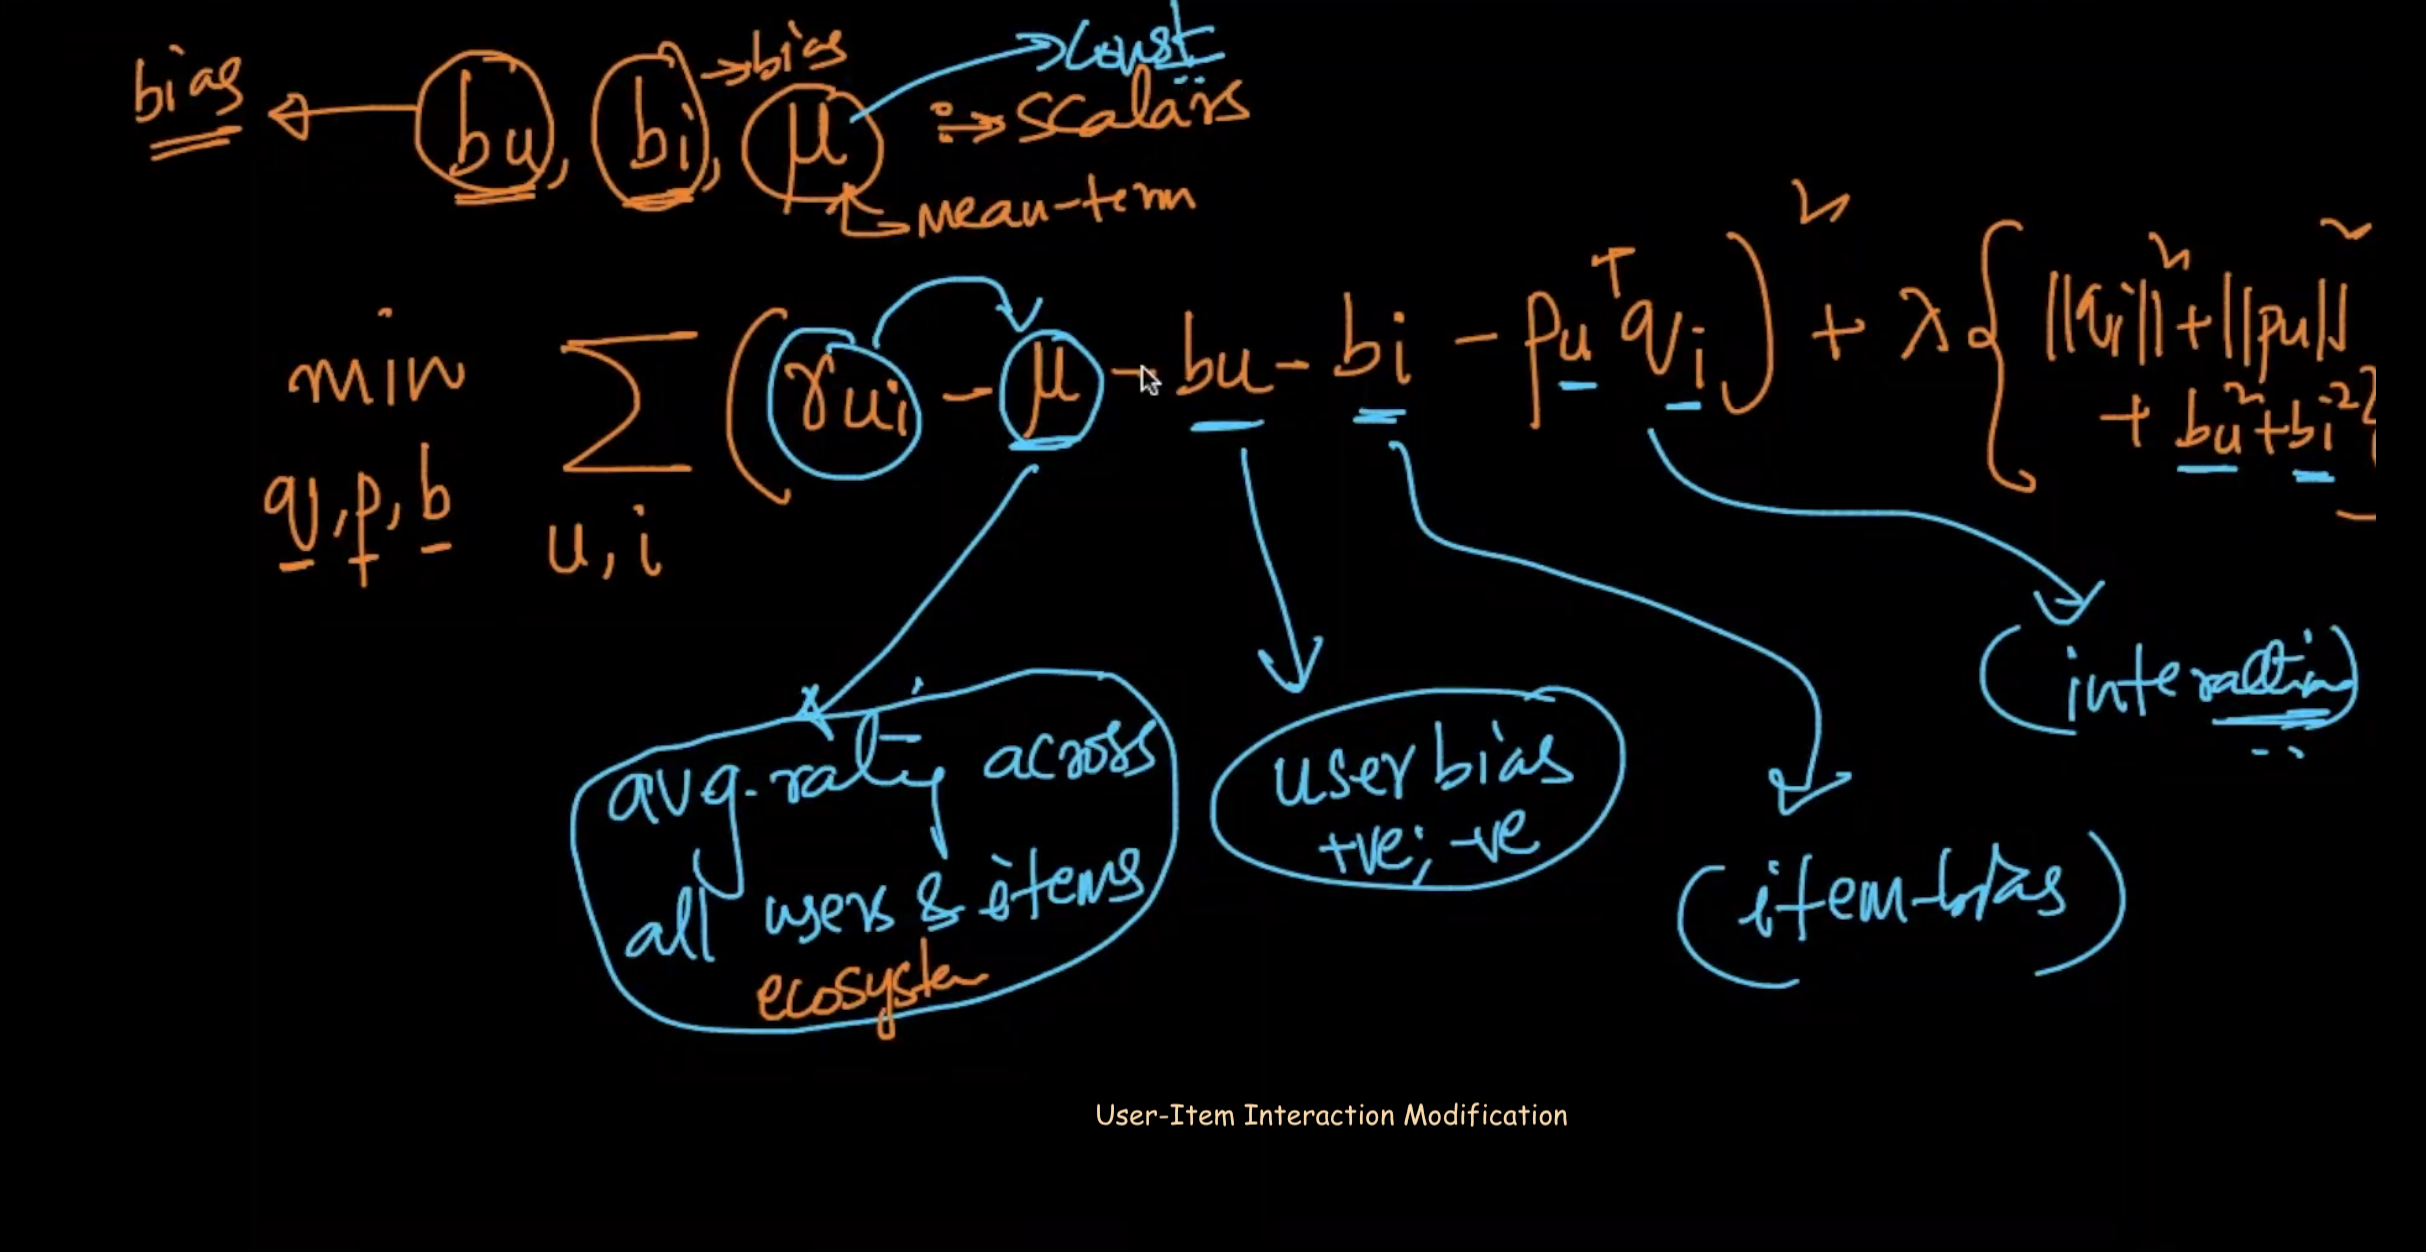 bias ← bu, bi → bias, μ → const
⇒ scalars
mean-term
min q, p, b ∑ u, i (rui - μ - bu - bi - pu^T qi)² + λ{||qi||² + ||pu||²
+ bu² + bi²}
(interaction)
avg. rating across
all users & items
ecosystem
user bias
+ve; -ve
(item-bias)
User-Item Interaction Modification